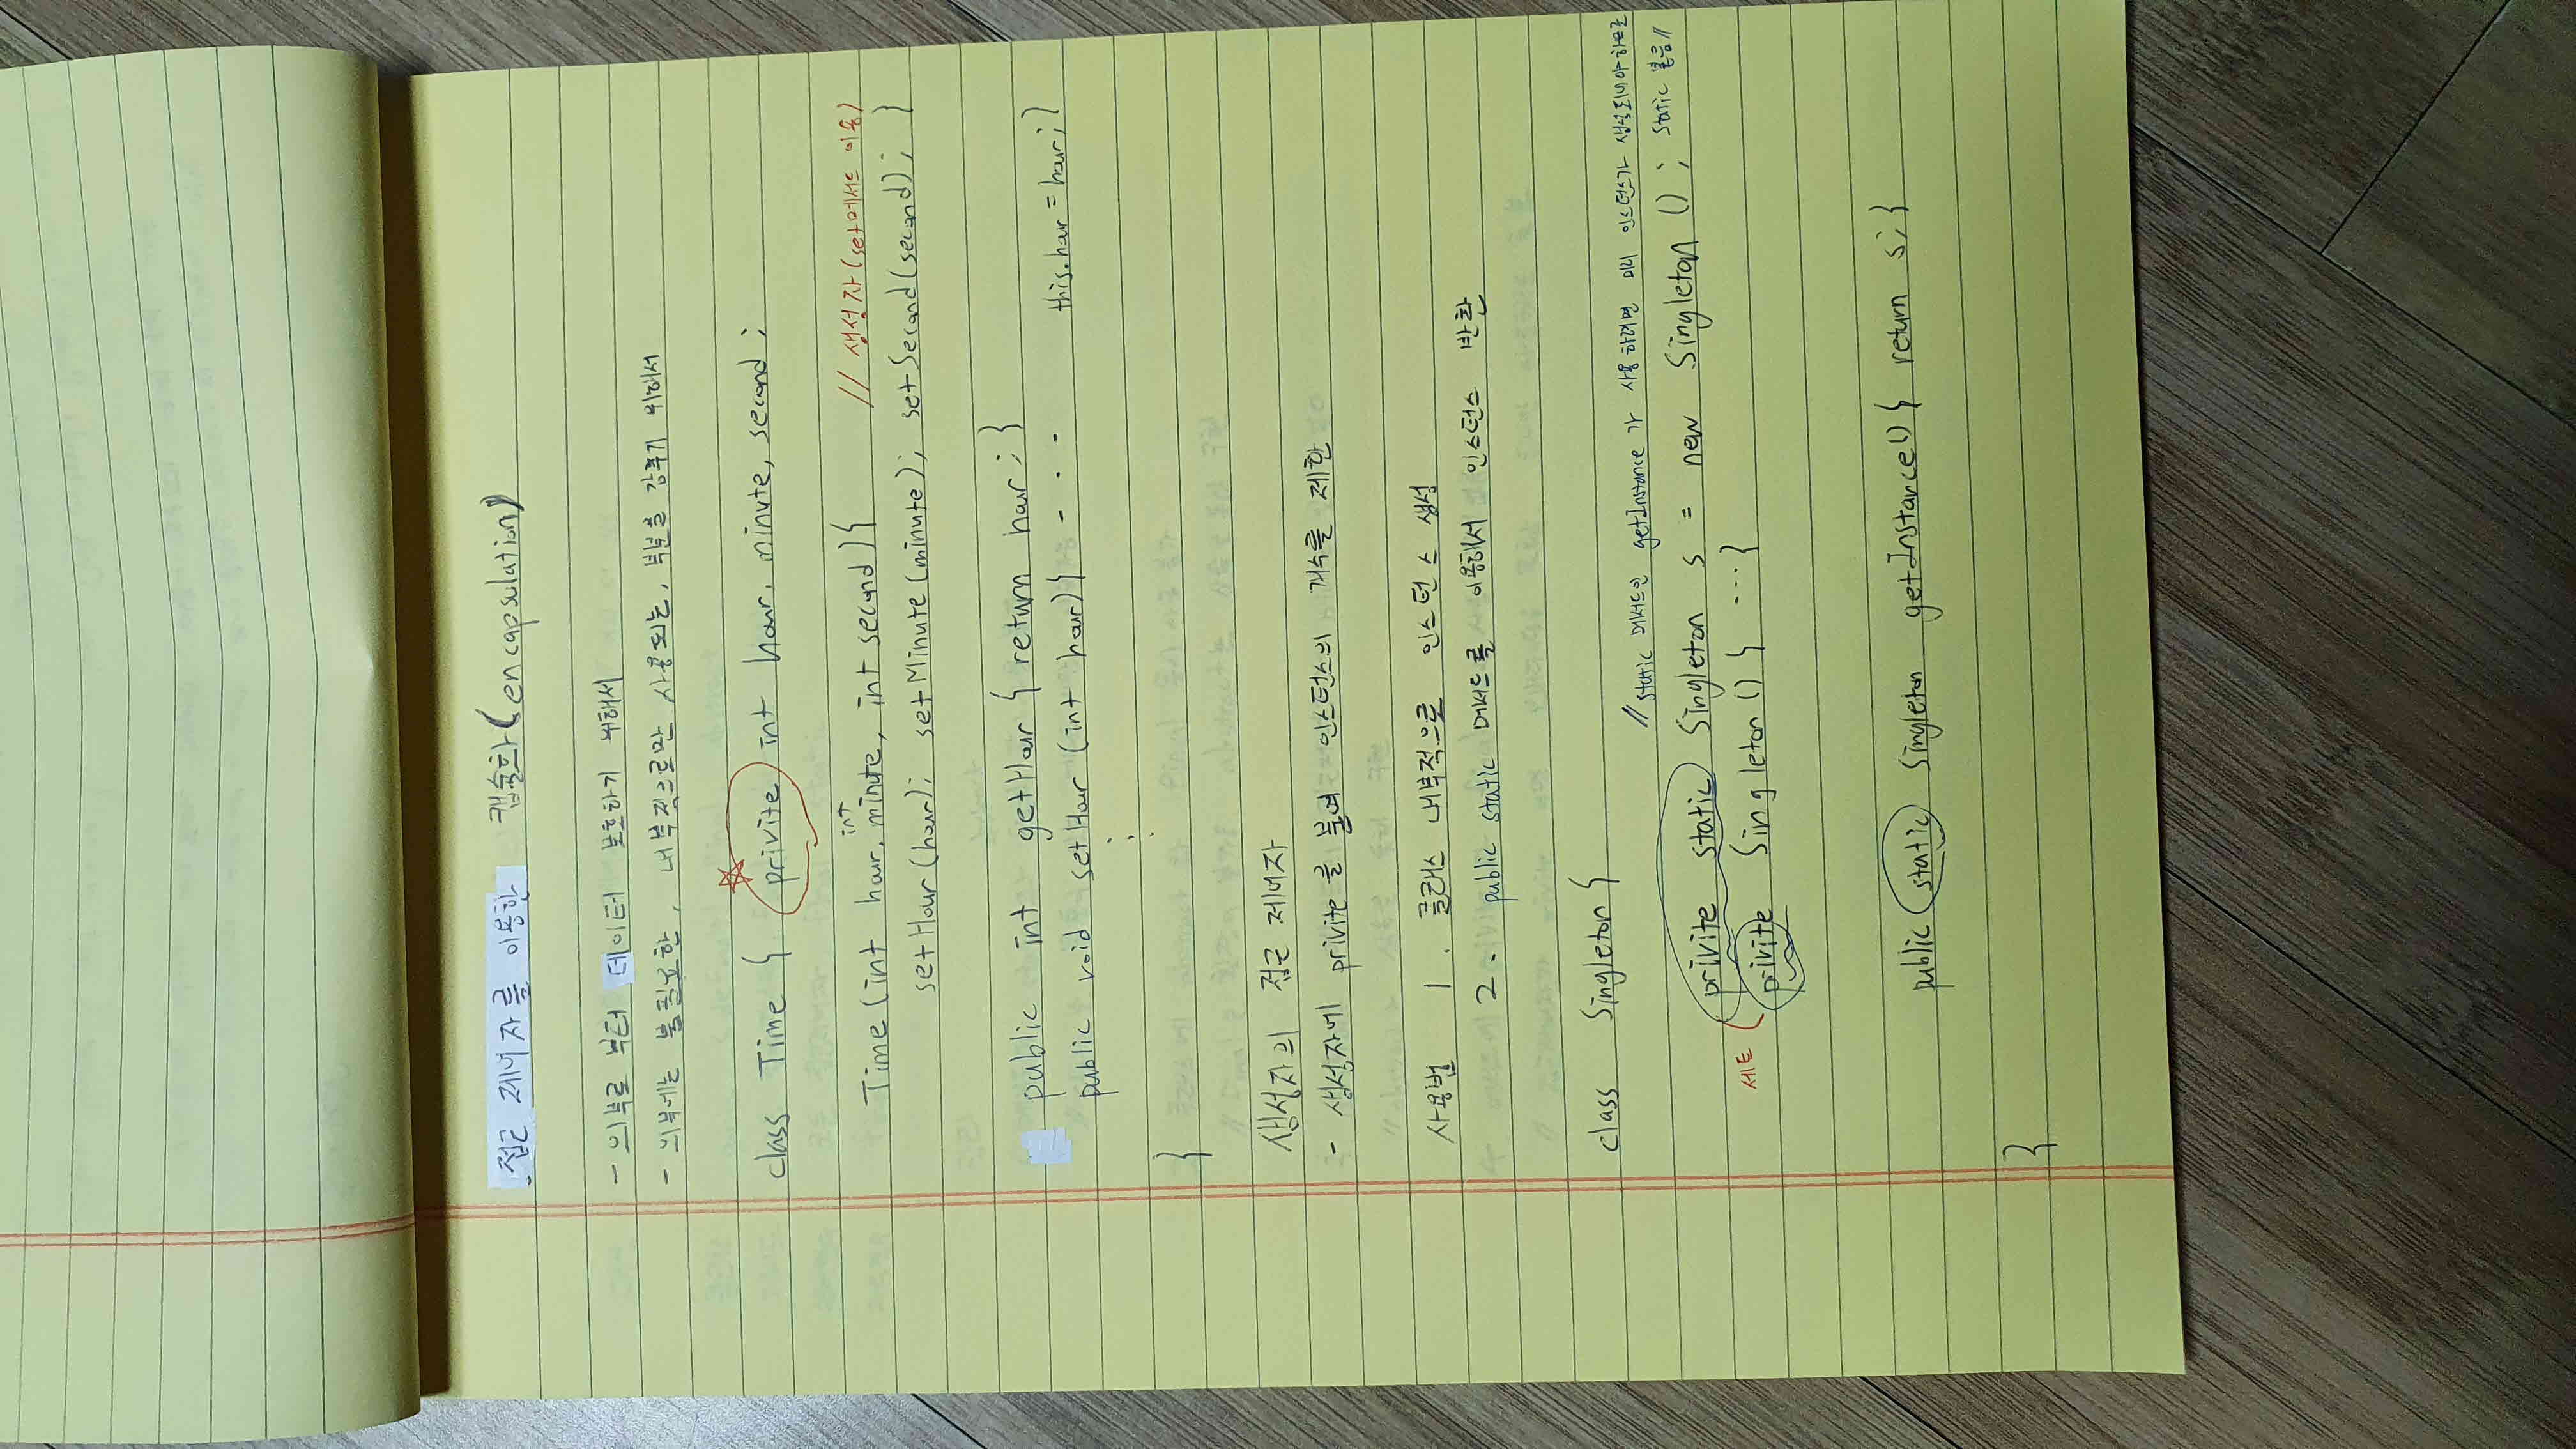 접근 제어자를 이용한 캡슐화(encapsulation)
- 외부로 부터 데이터 보호하기 위해서
- 외부에는 불필요한, 내부적으로만 사용되는, 부분을 감추기 위해서
class Time { privite int hour, minute, second;
int
Time (int hour, minute, int second){ // 생성자(set메서드 이용)
setHour(hour); setMinute(minute); setSecond(second); }
public int getHour { return hour; }
public void setHour (int hour){ - - - this.hour = hour; }
}
생성자의 접근 제어자
- 생성자에 privite를 붙여 인스턴스의 개수를 제한
사용법 1. 클래스 내부적으로 인스턴스 생성
2. public static 메서드를 이용해서 인스턴스 반환
class Singleton {
// static 메서드인 getInstance가 사용하려면 미리 인스턴스가 생성되어야 하므로
privite static Singleton s = new Singleton (); static 붙음 //
세트 privite Singleton () { ... }
public static Singleton getInstance() { return s; }
}